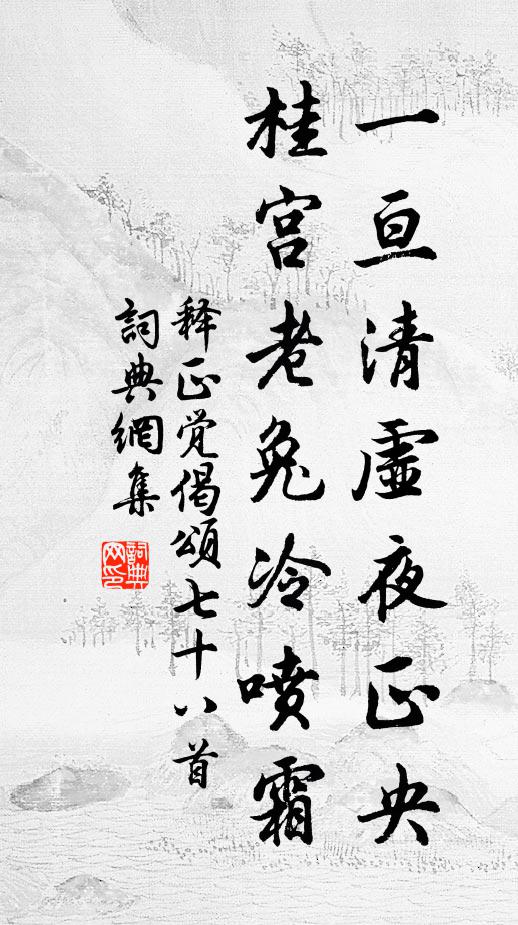 一亘清虚夜正央
桂宫老兔冷喷霜
释正觉偈颂七十八首
詞典網集
詞典网印